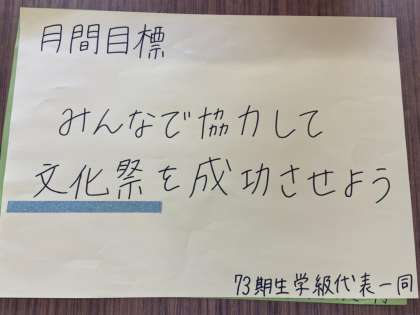 月間目標
みんなで協力して
文化祭を成功させよう
73期生学級代表一同